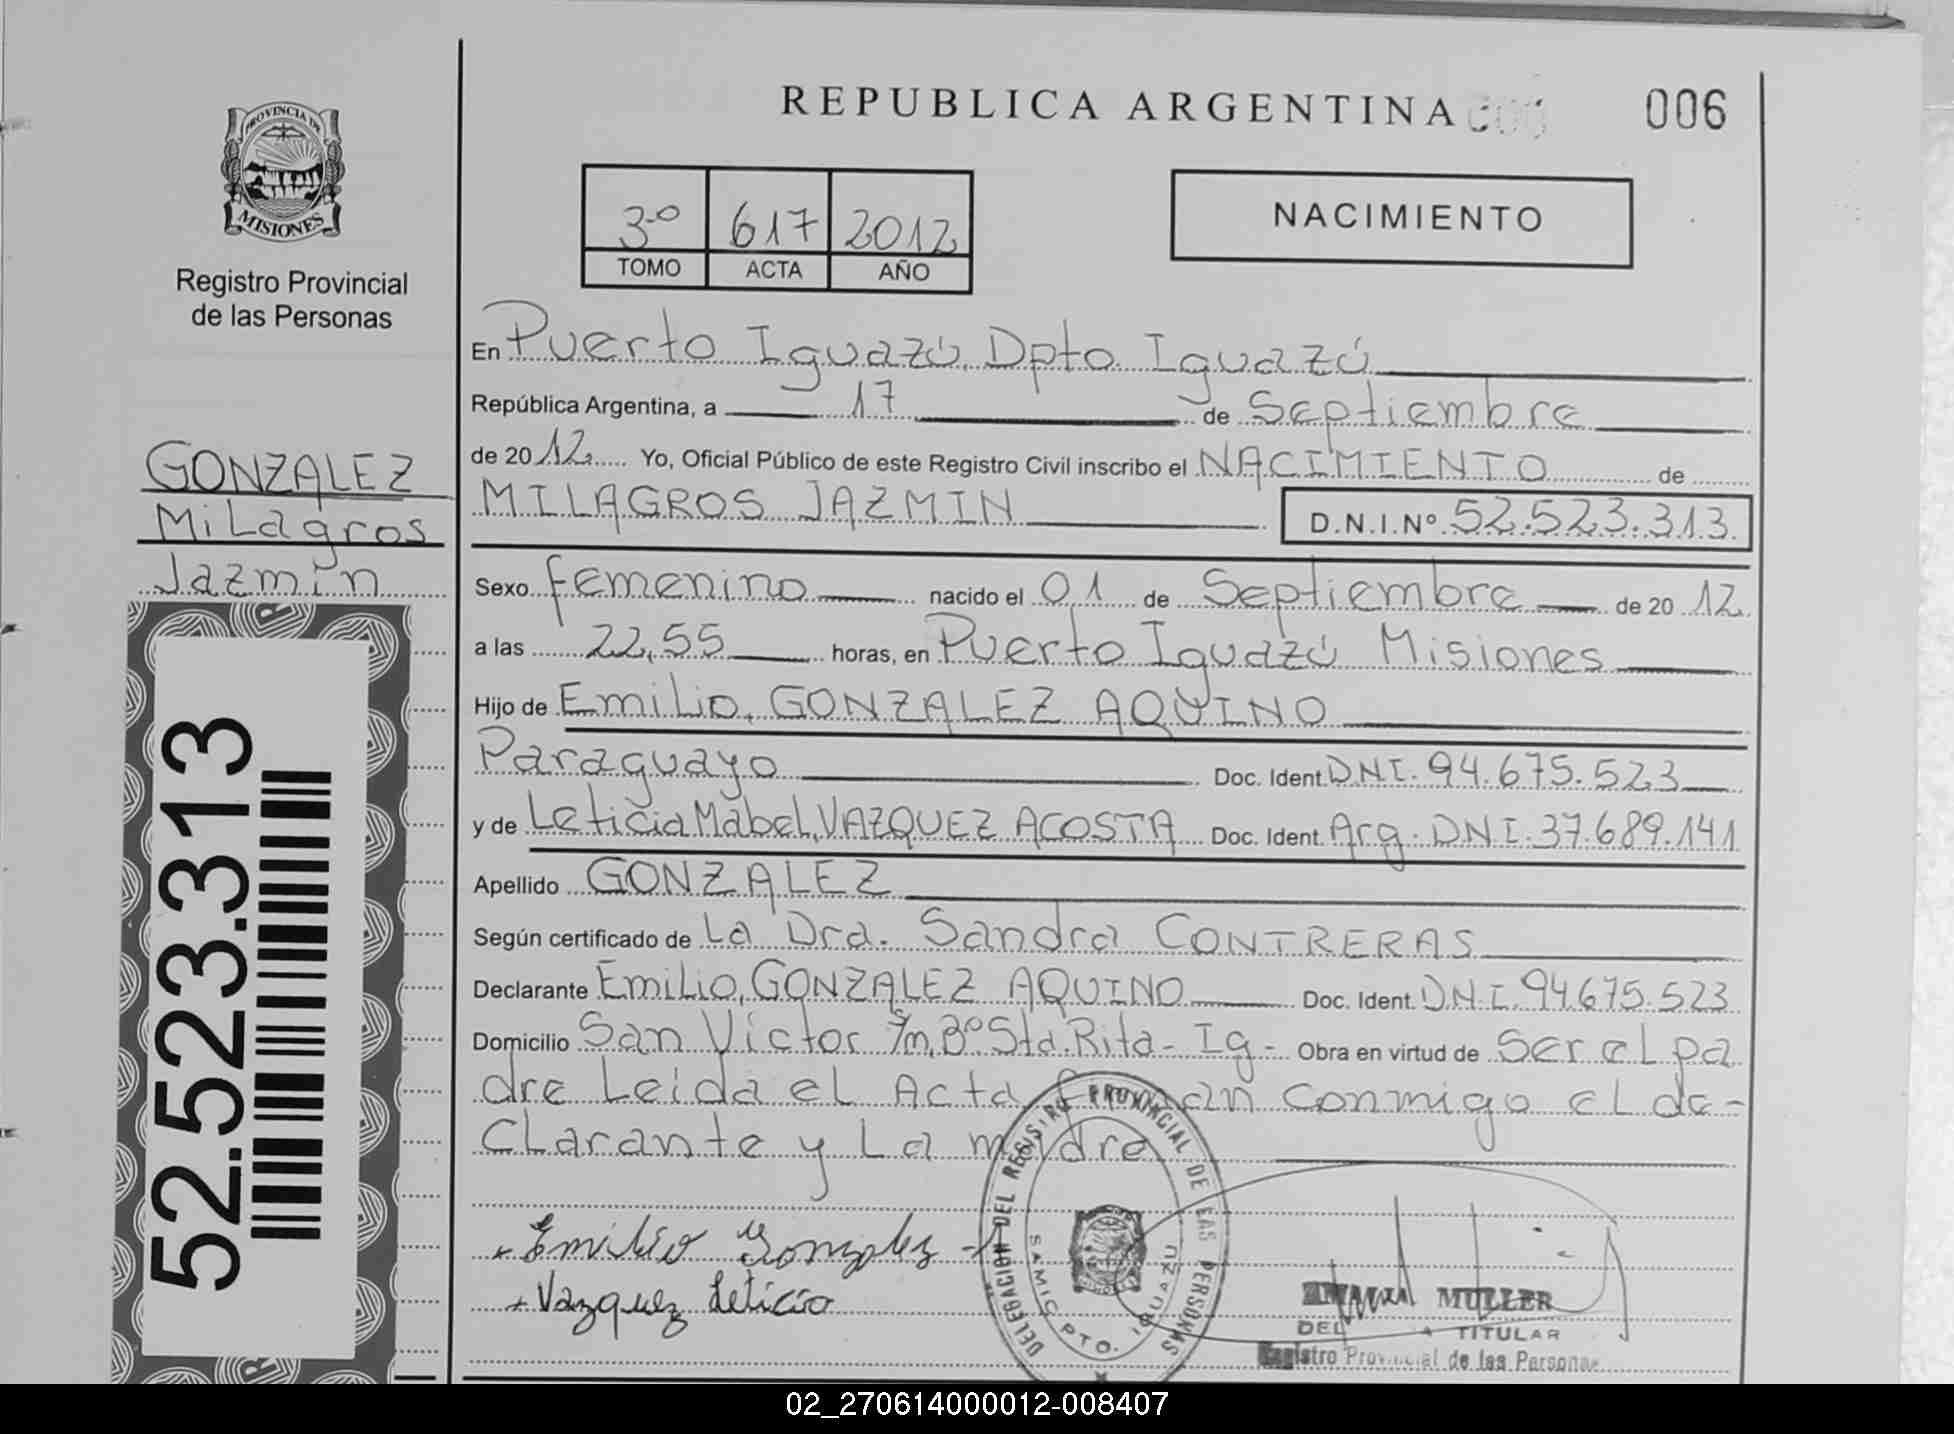 PROVINCIA DE
MISIONES
Registro Provincial
de las Personas
GONZALEZ
Milagros
Jazmín
52.523.313
REPUBLICA ARGENTINA 006
3º 617 2012
TOMO ACTA AÑO
NACIMIENTO
En Puerto Iguazú, Dpto. Iguazú
República Argentina, a 17 de Septiembre
de 2012 Yo, Oficial Público de este Registro Civil inscribo el NACIMIENTO de
MILAGROS JAZMIN D.N.I.Nº 52.523.313.
Sexo femenino nacido el 01 de Septiembre de 20 12
a las 22,55 horas, en Puerto Iguazú Misiones
Hijo de Emilio, GONZALEZ AQUINO
Paraguayo Doc. Ident. DNI. 94.675.523
y de Leticia Mabel, VAZQUEZ ACOSTA Doc. Ident. Arg. DNI. 37.689.141
Apellido GONZALEZ
Según certificado de La Dra. Sandra CONTRERAS
Declarante Emilio, GONZALEZ AQUINO Doc. Ident. DNI. 94675.523
Domicilio San Victor S/n, Bº Sta. Rita - Ig - Obra en virtud de Ser el pa
dre Leida el Acta firman conmigo el de-
clarante y La madre
Emilio Gonzalez
Vazquez Leticia
DELEGACION DEL REGISTRO PROVINCIAL DE LAS PERSONAS
DPTO. IGUAZU
MULLER
TITULAR
Registro Provincial de las Personas
02_270614000012-008407